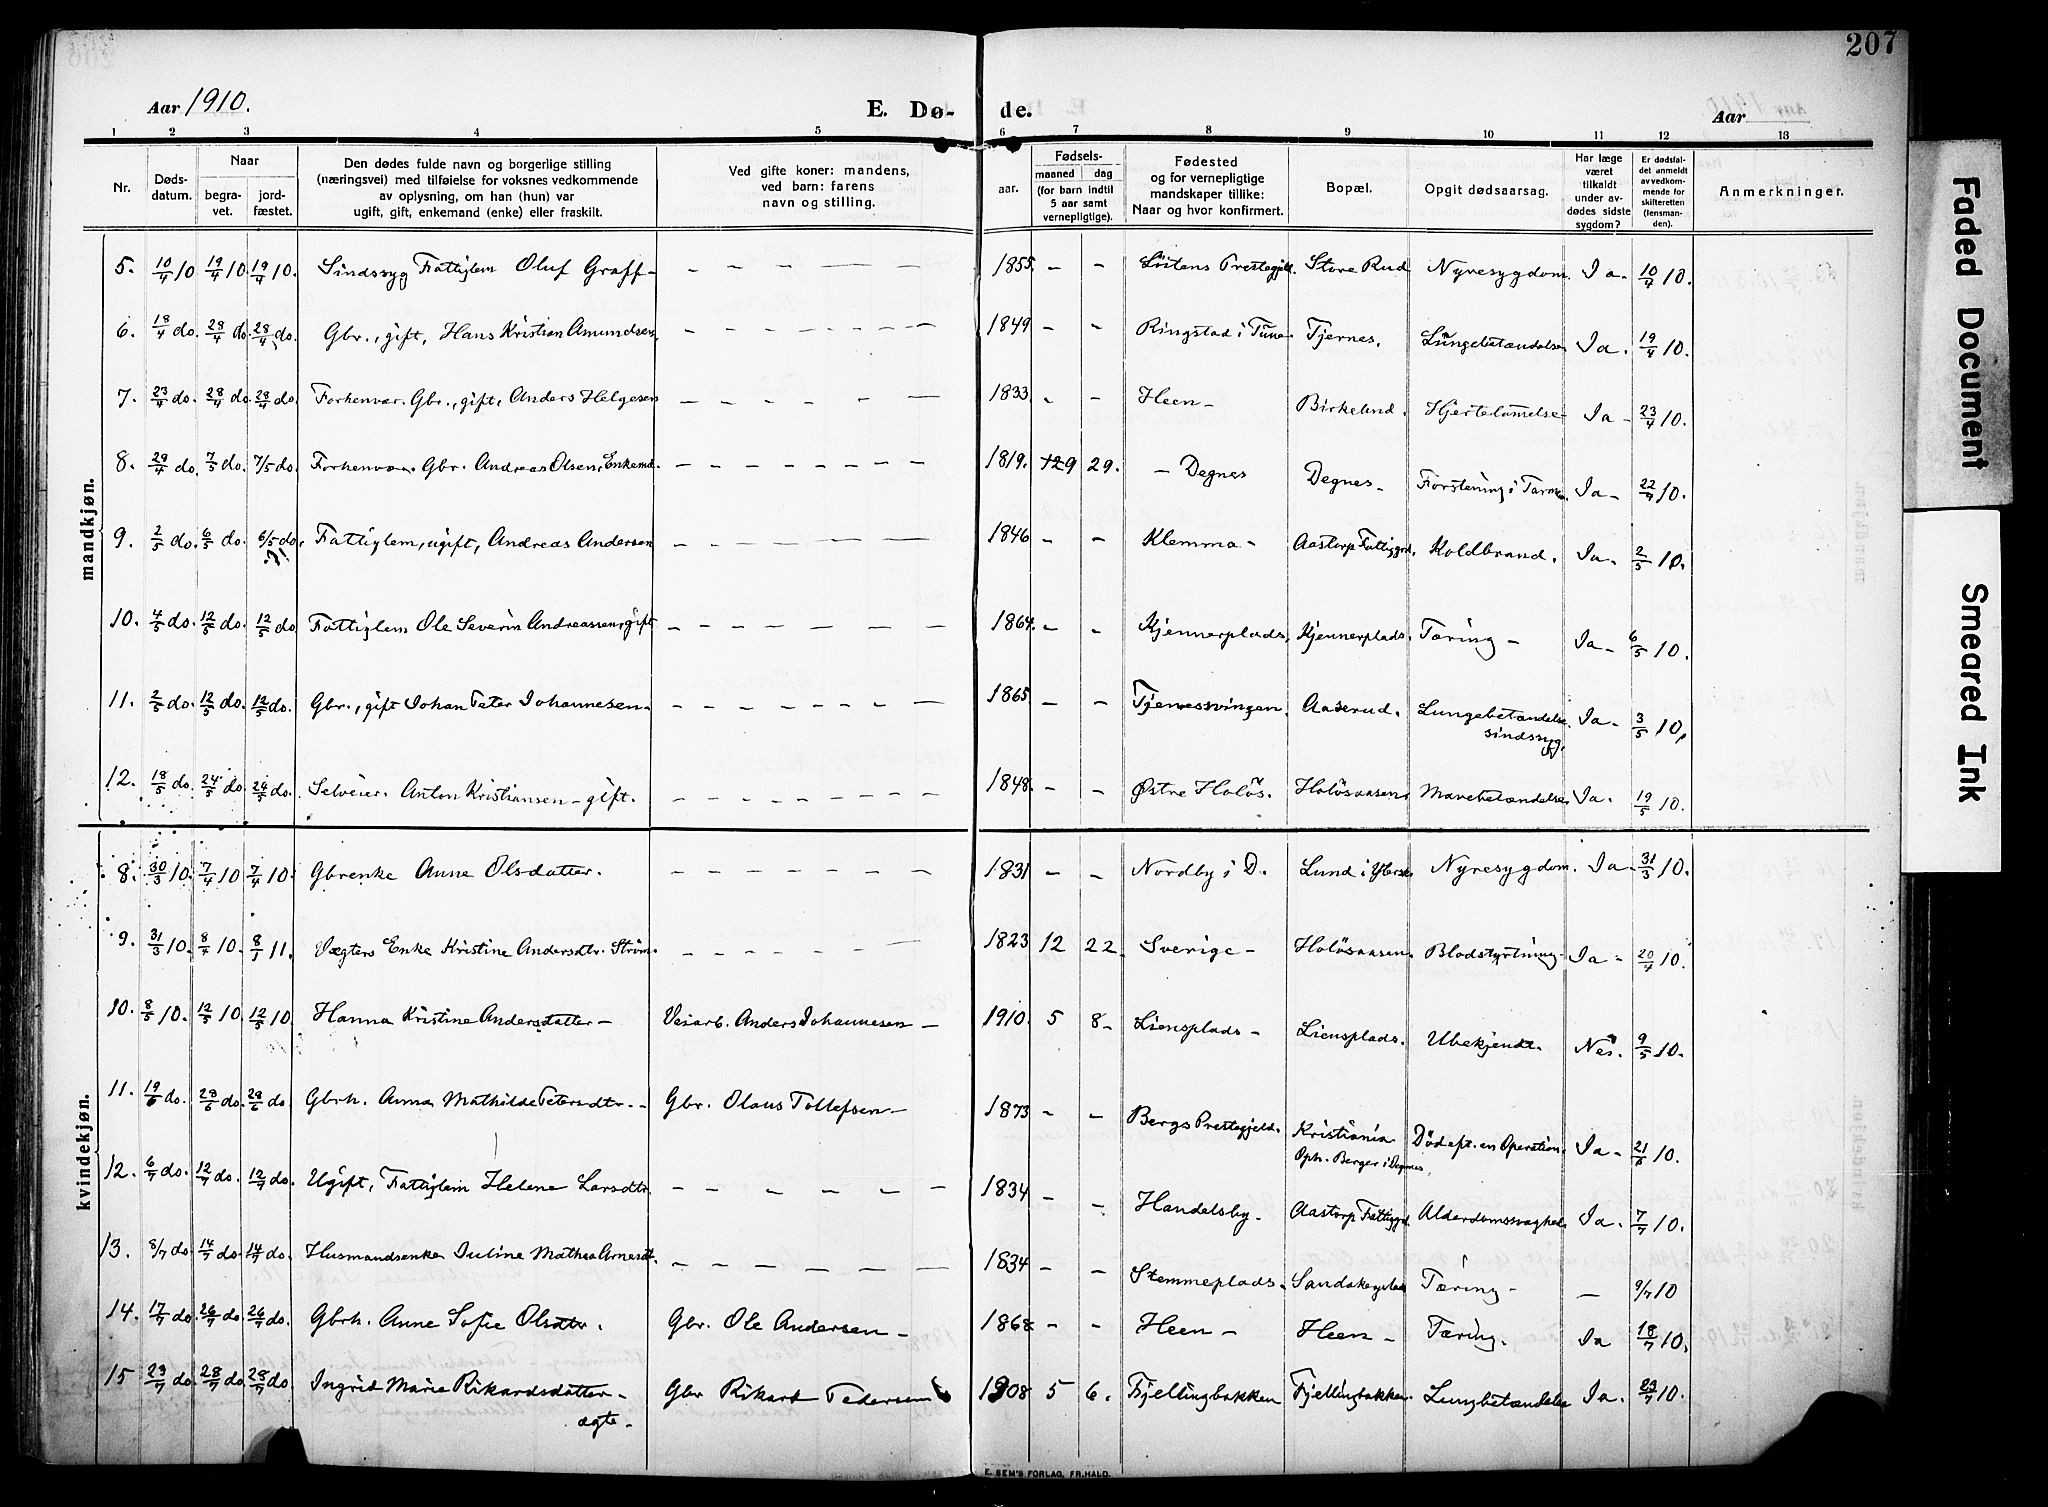 207
Aar 1910. E. Dø- de. Aar
1 2 3 4 5 6 7 8 9 10 11 12 13
Nr. Døds-datum. Naar begra-vet. jord-fæstet. Den dødes fulde navn og borgerlige stilling (næringsvei) med tilføielse for voksnes vedkommende av oplysning, om han (hun) var ugift, gift, enkemand (enke) eller fraskilt. Ved gifte koner: mandens, ved barn: farens navn og stilling. aar. Fødsels- maaned dag (for barn indtil 5 aar samt vernepligtige). Fødested og for vernepligtige mandskaper tillike: Naar og hvor konfirmert. Bopæl. Opgit dødsaarsag. Har læge været tilkaldt under av-dødes sidste sygdom? Er dødsfal-det anmeldt av vedkom-mende for skifteretten (lensman-den). Anmerkninger.
mandkjøn.
5. 10/4 10 19/4 10. 19/4 10. Sindssyg Fattiglem Oluf Graff - — — — — — 1855. - - Prestegjeld. Store Rud Nyresygdom. Ia - 10/4 10.
6. 18/4 do. 28/4 do. 28/4 do. Gbr., gift, Hans Kristian Amundsen, — — — — — 1849 - - Ringstad i Tune Tjernes. Lungebetændelse Ia. 19/4 10.
7. 23/4 do. 28/4 do. 28/4 do. Forhenvær. Gbr., gift, Anders Helgesen — — — — — 1833 - - Heen - Birkelund. Hjertelamelse Ia - 23/4 10.
8. 29/4 do. 7/5 do. 7/5 do. Forhenvær. Gbr. Andreas Olsen, Enkemd. — — — — — 1819. 9 29. - Degnes Degnes - i Tarm Ia - 22/4 10.
9. 2/5 do. 6/5 do. 6/5 do. Fattiglem, ugift, Andreas Andersen — — — — — 1846 - - Klemma - Aastorp Fattiggrd. Koldbrand. Ia - 2/5 10.
10. 4/5 do. 12/5 do. 12/5 do Fattiglem Ole Severin Andreassen, gift — — — — — 1864. - - Kjennerplads. Kjennerplads. Tæring - Ia - 6/5 10.
11. 2/5 do. 12/5 do. 12/5 do. Gbr., gift Johan Peter Johannesen - — — — — — 1865. - - Tjernessvingen. Aaserud. Lungebetændelse. sindssyg. Ia - 3/5 10.
12. 18/5 do. 24/5 do. 24/5 do. Selveier. Anton Kristiansen - gift. — — — — — 1848. - - Østre Holøs. Holøsaasen. Mavebetændelse Ia. 19/5 10.
kvindekjøn.
8. 30/3 10. 7/4 10 7/4 10. Gbrenke Anne Olsdatter. — — — — — 1831 - - Nordby i D. Lund i Nyresygdom. Ia - 31/3 10.
9. 31/3 10. 8/4 10. 8/4 11. Vægters Enke Kristine Andersdtr. Strøm - — — — — — 1823 12 22. Sverige - Holøsaasen. Blodstyrtning - Ia - 20/4 10.
10. 8/5 10. 12/5 10 12/5 10. Hanna Kristine Andersdatter - Veiarb. Anders Johannesen - 1910. 5 8 - Liensplads - Liensplads. Ubekjendt. Nei. 9/5 10.
11. 19/6 do. 28/6 do. 28/6 do Gbrh. Anna Mathilde Petersdtr. - Gbr. Olaus Tollefsen - 1873 - - Bergs Prestegjeld. Kristiania Oph. Berger i Degnes. Død eft. en Operation. Ia - 21/6 10.
12. 6/7 do. 12/7 do. 12/7 do. Ugift, Fattiglem Helene Larsdtr. — — — — — 1834 - - Handelsby. Aastorp Fattiggrd. Alderdomssvaghed Ia - 7/7 10.
13. 8/7 do. 14/7 do. 14/7 do. Husmandsenke Juline Mathea Arnesdt. — — — — — 1834 - - Stemmeplads. Tæring - - 9/7 10
14. 17/7 do. 26/7 do. 26/7 do. Gbrh. Anne Sofie Olsdtr. Gbr. Ole Andersen - 1868. - - Heen - Heen - Tæring. Ia 18/7 10.
15 23/7 do. 28/7 do. 28/7 do Ingrid Marie Rikardsdatter - ægte. Gbr Rikart Pedersen 1908 5 6. Fjellingbakken Fjellingbakken. Lungbetændelse Ia. 23/7 10.
E. SEM'S FORLAG, FR.HALD.
Faded Document
Smeared Ink